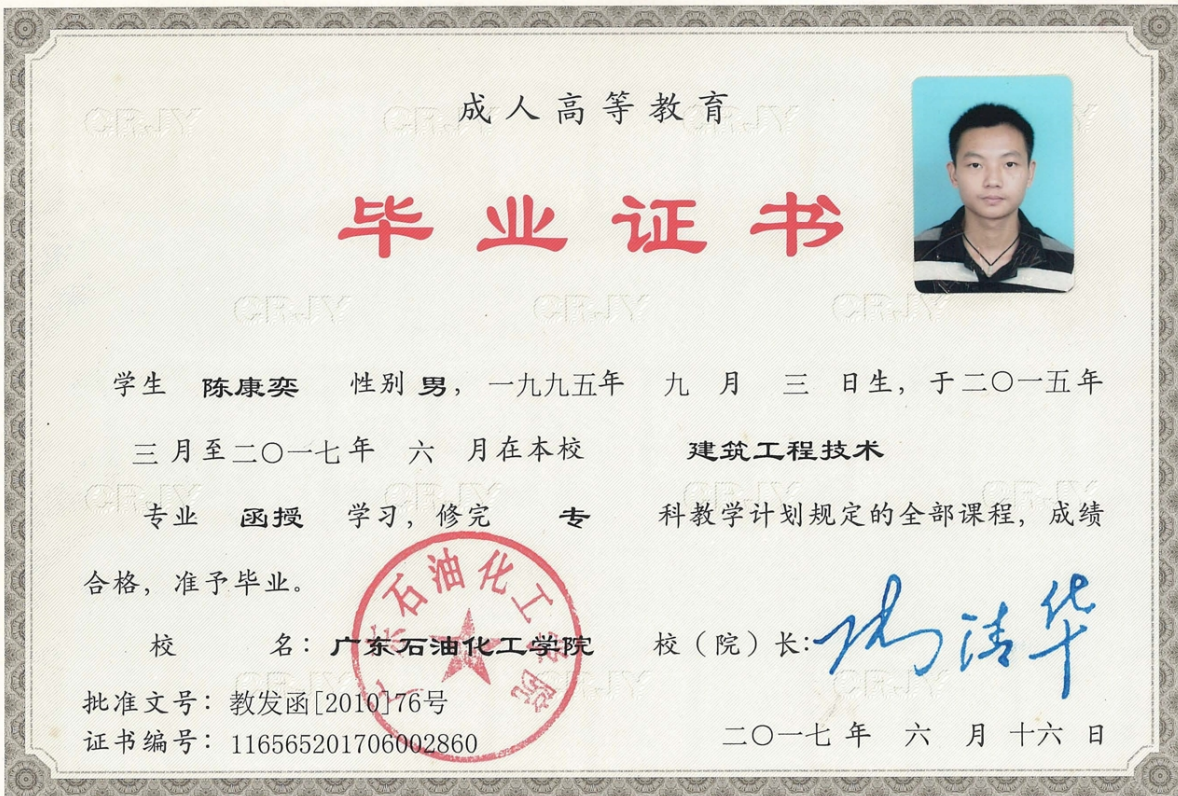 成人高等教育
毕业证书
学生 陈康奕 性别 男， 一九九五年 九 月 三 日生，于二〇一五年
三月至二〇一七年 六 月在本校 建筑工程技术
专业 函授 学习，修完 专 科教学计划规定的全部课程，成绩
合格，准予毕业。
校 名：广东石油化工学院 校（院）长：
批准文号：教发函[2010]76号
证书编号：116565201706002860 二〇一七 年 六 月 十六 日
广东石油化工学院
CRJY